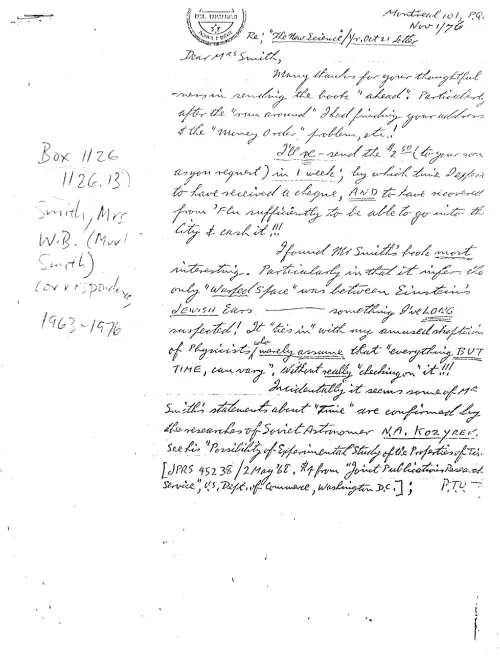 Montreal 101, P.Q.
Nov 1/76
Re; "The New Science"/Yr. Oct 21 letter
Dear Mrs Smith,
Many thanks for your thoughtful
-ness in sending the book "ahead". Particularly
after the "run around" I had finding your address
& the "Money Order" problem, etc..!
I'll re-send the $2.50 (to your son
as you request) in 1 week; by which time I
to have received a cheque, AND to have recovered
from 'Flu sufficiently to be able to go into the
City & cash it!!!
I found Mr Smith's book most
interesting. Particularly in that it infers the
only "Warped Space" was between Einstein's
JEWISH Ears — something I've LONG
suspected! It "ties in" with my amused skepticism
of Physicists who merely assume that "everything BUT
TIME, can vary", without really "checking on" it!!!
Incidentally it seems some of Mr
Smith's statements about "time" are confirmed by
the researches of Soviet Astronomer N.A. KOZYREV.
See his "Possibility of Experimental Study of the Properties of Time
[JPRS 45238/2 May '68, $4 from "Joint Publications Research
Service", U.S. Dept. of Commerce, Washington D.C.];
P.T.O. —
Box 1126
1126.13)
Smith, Mrs
W.B. (Murl
Smith)
correspondence
1963-1976